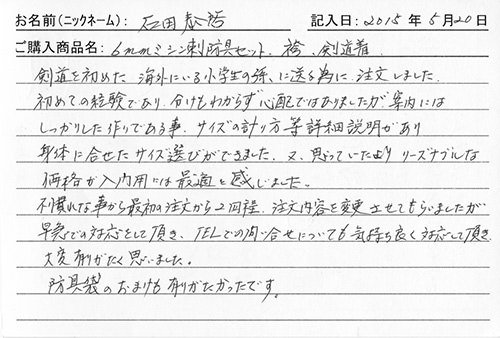 お名前(ニックネーム): 石田泰浩 記入日: 2015年5月20日
ご購入商品名: 6mmミシン刺防具セット、袴、剣道着
剣道を初めた、海外にいる小学生の孫、に送る為に、注文しました。
初めての経験であり、分けもわからず心配ではありましたが案内には
しっかりした作りである事、サイズの計り方等詳細説明があり
身体に合せたサイズ選びができました。又、思っていたより リーズナブルな
価格が入門用には最適と感じました。
不慣れな事から最初の注文から2回程、注文内容を変更させてもらいましたが
早急での対応をして頂き、TELでの問い合せについても気持ち良く対応して頂き、
大変有りがたく思いました。
防具袋のおまけも有りがたかったです。